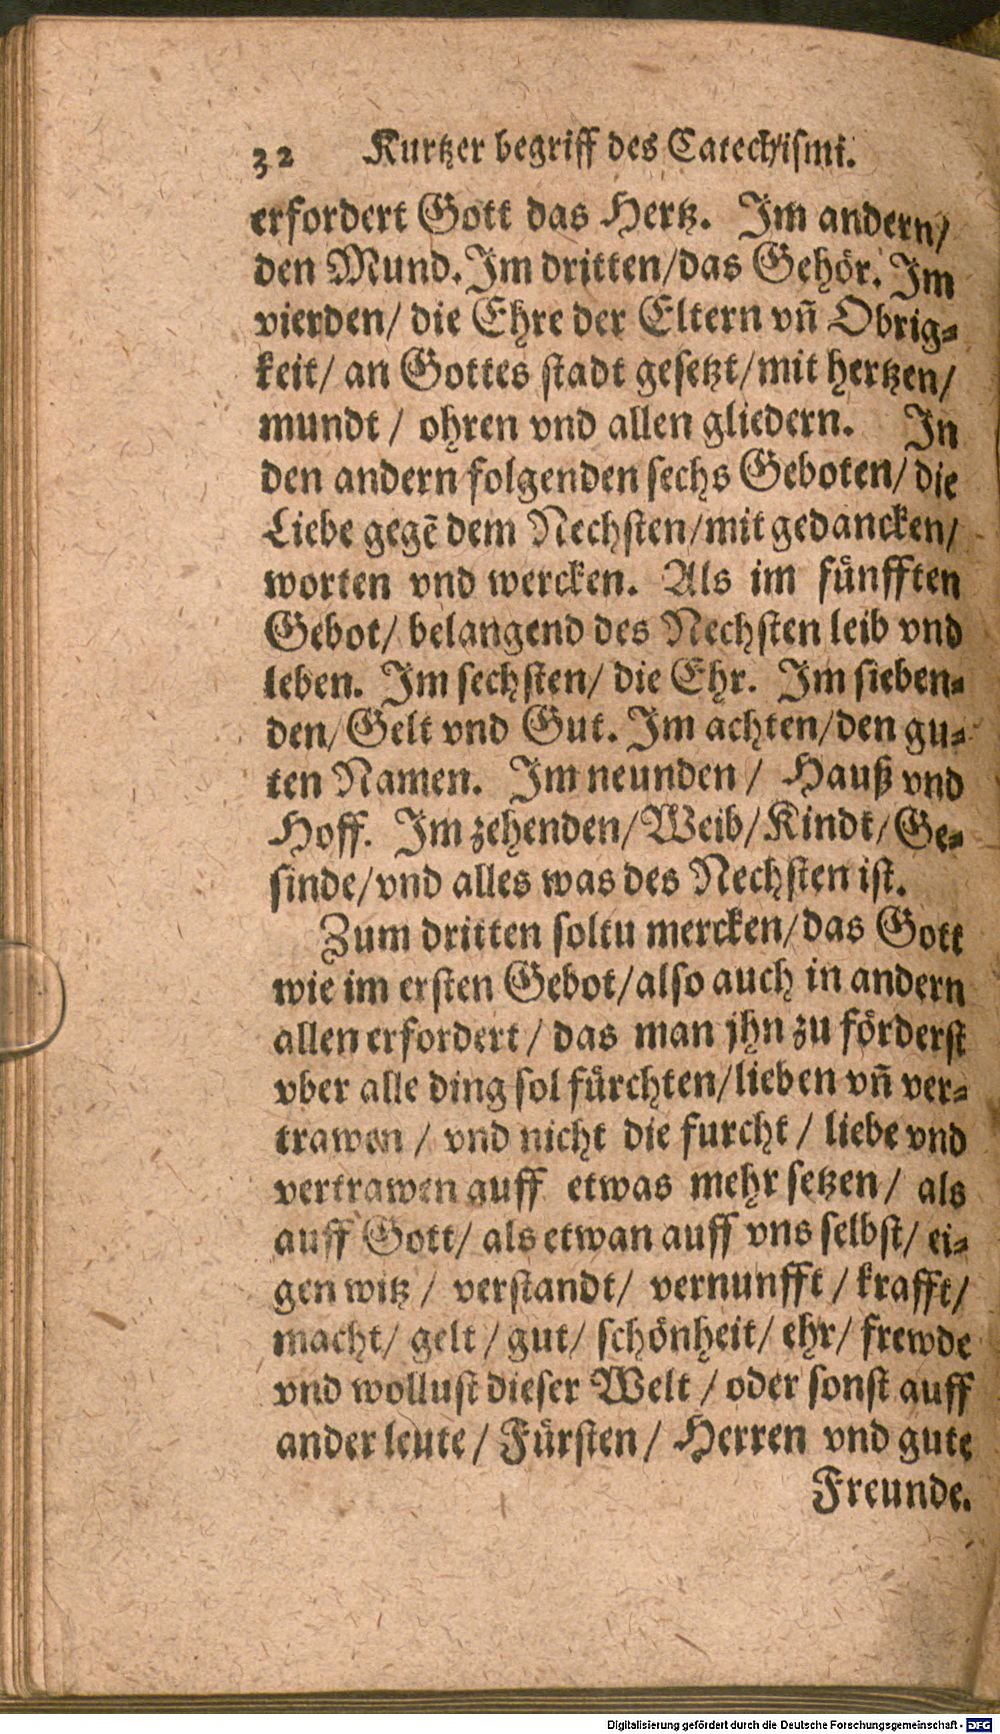 32 Kurtzer begriff des Catechismi.
erfordert Gott das Hertz. Im andern/
den Mund. Im dritten/das Gehör. Im
vierden/ die Ehre der Eltern vn̄ Obrig-
keit/ an Gottes stadt gesetzt/mit hertzen/
mundt / ohren vnd allen gliedern. In
den andern folgenden sechs Geboten/ die
Liebe gegē dem Nechsten/mit gedancken/
worten vnd wercken. Als im fünfften
Gebot/ belangend des Nechsten leib vnd
leben. Im sechsten/ die Ehr. Im sieben-
den/Gelt vnd Gut. Im achten/den gu-
ten Namen. Im neunden / Hauß vnd
Hoff. Im zehenden/Weib/Kindt/Ge-
sinde/vnd alles was des Nechsten ist.
Zum dritten soltu mercken/das Gott
wie im ersten Gebot/also auch in andern
allen erfordert / das man jhn zu förderst
vber alle ding sol fürchten/lieben vn̄ ver-
trawen / vnd nicht die furcht / liebe vnd
vertrawen auff etwas mehr setzen / als
auff Gott/ als etwan auff vns selbst/ ei-
gen witz / verstandt/ vernunfft / krafft/
macht/ gelt / gut/ schönheit/ ehr/ frewde
vnd wollust dieser Welt / oder sonst auff
ander leute / Fürsten / Herren vnd gute
Freunde.
Digitalisierung gefördert durch die Deutsche Forschungsgemeinschaft - DFG